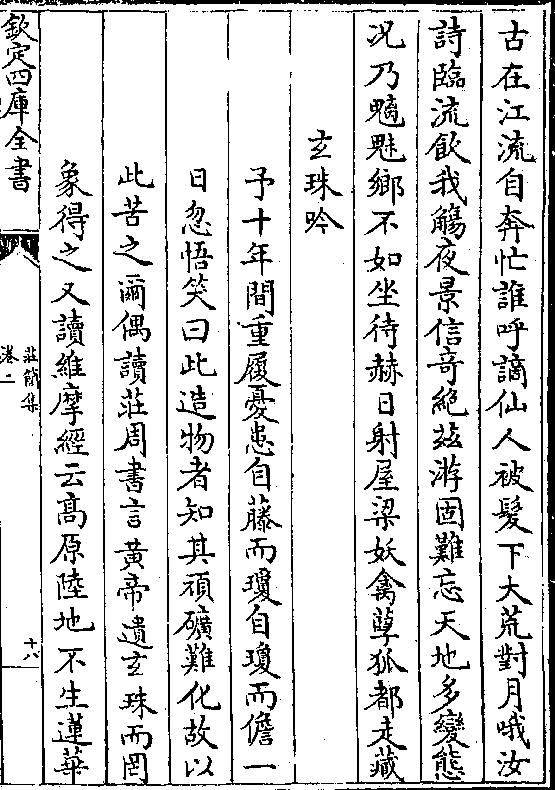 古在江流自奔忙誰呼謫仙人被髮下大荒對月哦汝
詩臨流飲我觴夜景信奇絶兹游固難忘天地多變態
况乃魑魅鄉不如坐待赫日射屋梁妖禽孽狐都走藏
玄珠吟
予十年間重履憂患自藤而瓊自瓊而儋一
日忽悟笑曰此造物者知其頑礦難化故以
此苦之爾偶讀莊周書言黄帝遺玄珠而罔
象得之又讀維摩經云髙原陸地不生蓮華
欽定四庫全書
莊簡集
卷二
十八